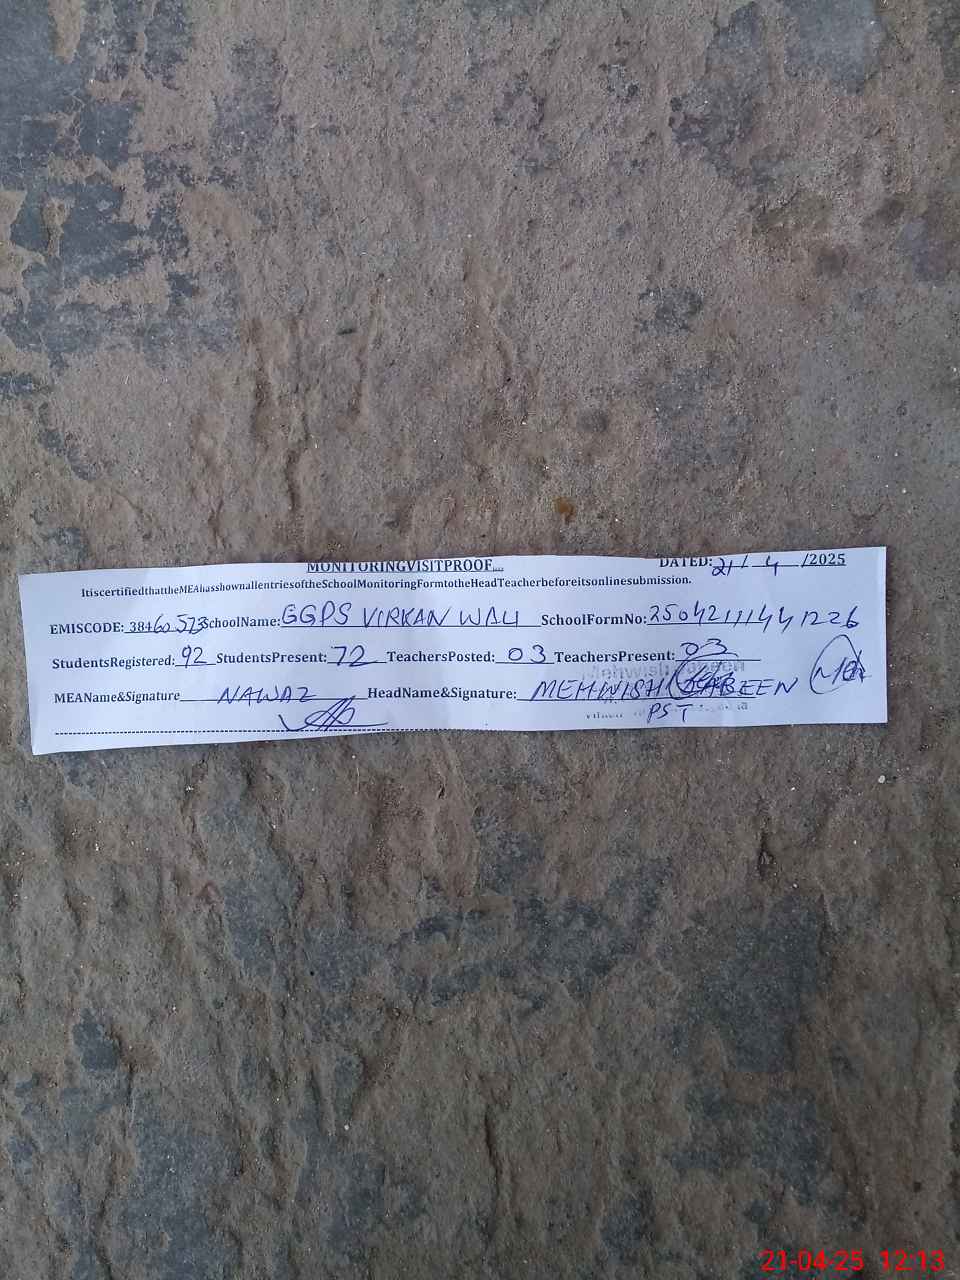 MONITORINGVISITPROOF....
DATED: 21/ 4 /2025
ItiscertifiedthattheMEAhasshownallentriesoftheSchoolMonitoringFormtotheHeadTeacherbeforeitsonlinesubmission.
EMISCODE: SchoolName: GGPS VIRKAN WALI SchoolFormNo: 25042111441226
StudentsRegistered: 92 StudentsPresent: 72 TeachersPosted: 03 TeachersPresent: 03
MEAName&Signature NAWAZ HeadName&Signature: MEHWISH JABEEN
PST
21-04-25 12:13